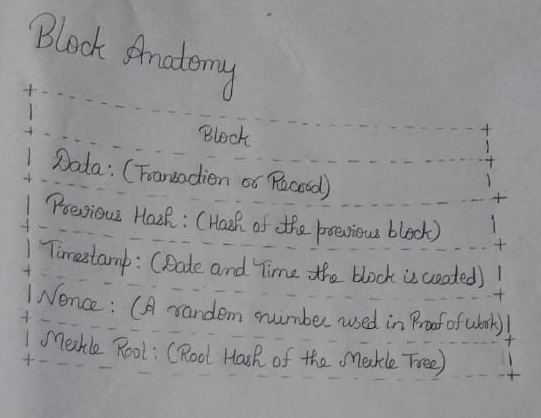 Block Anatomy
Block
Data: (Transaction or Record)
Previous Hash: (Hash of the previous block)
Timestamp: (Date and Time the block is created)
Nonce: (A random number used in Proof of Work)
Merkle Root: (Root Hash of the Merkle Tree)